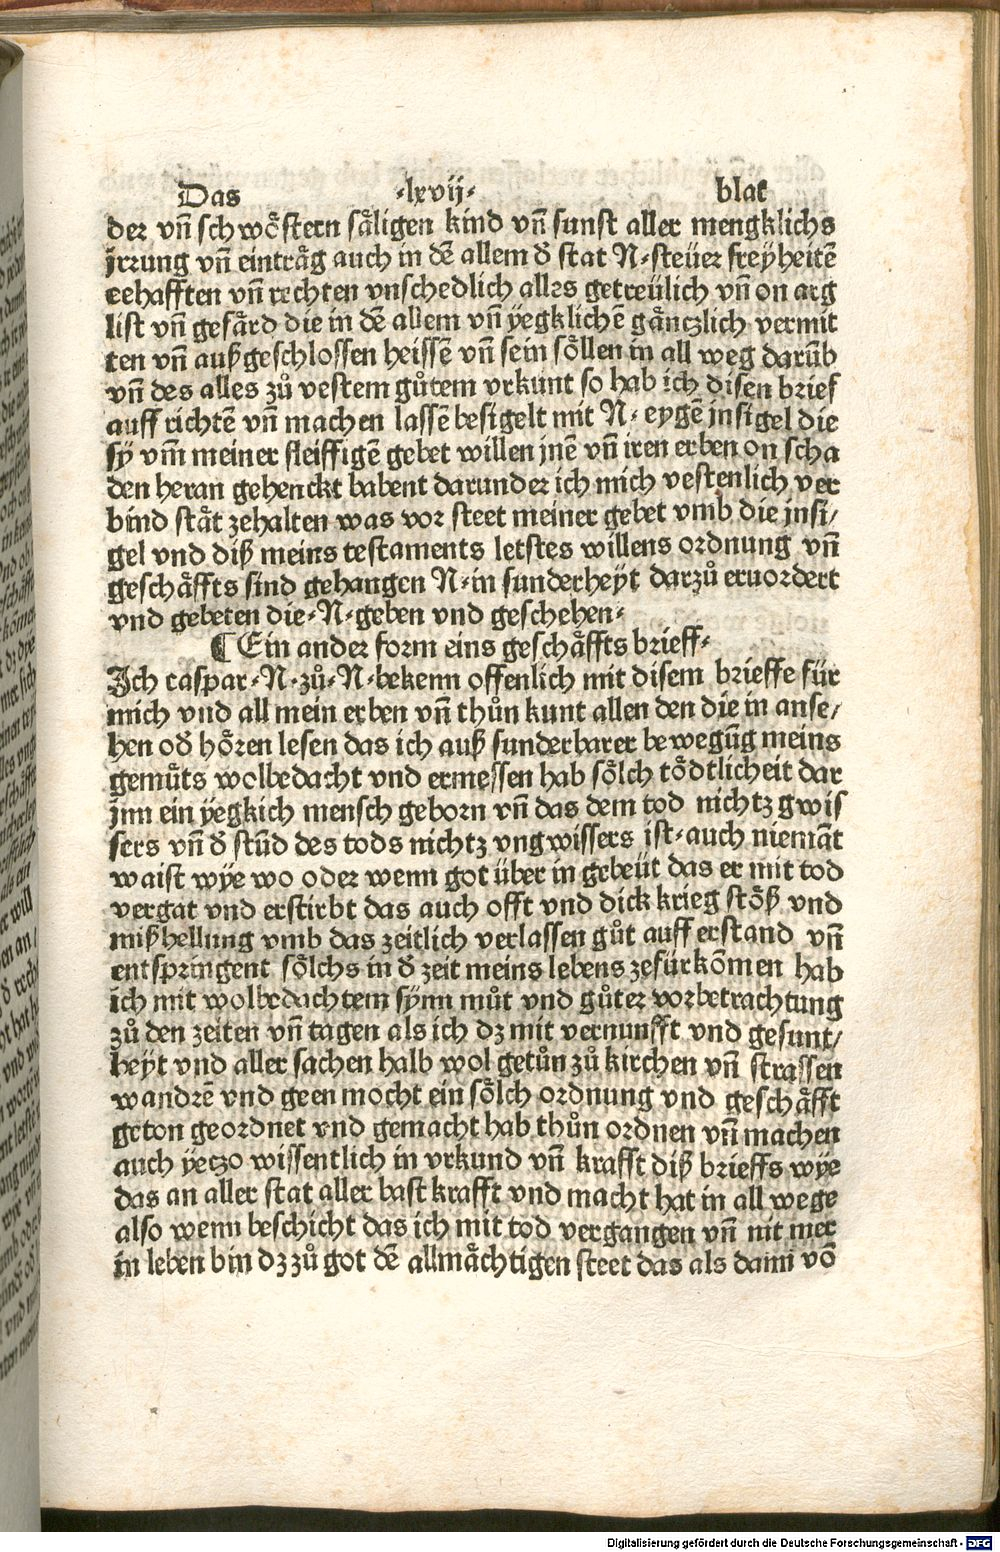 Das ·lxvij· blat
der vn̄ schwoͤstern saͤligen kind vn̄ sunst aller mengklichs
jrrung vn̄ eintraͤg auch in dē allem đ stat N·steüer freÿheitē
eehafften vn̄ rechten vnschedlich alles getreülich vn̄ on arg
list vn̄ gefaͤrd die in dē allem vn̄ ÿegklichē gaͤnczlich vermit
ten vn̄ außgeschlossen heissē vn̄ sein soͤllen in all weg darūb
vn̄ des alles zuͦ vestem guͦtem vrkunt so hab ich disen brief
auff richtē vn̄ machen lassē besigelt mit N· eygē jnsigel die
sÿ vm̄ meiner fleiffigē gebet willen jnē vn̄ iren erben on scha
den heran gehenckt habent darunder ich mich vestenlich ver
bind staͤt zehalten was vor steet meiner gebet vmb die jnsi/
gel vnd diß meins testaments letstes willens ordnung vn̄
geschaͤffts sind gehangen N·in sunderheÿt darzuͦ eruordert
vnd gebeten die·N·geben vnd geschehen·
¶ Ein ander form eins geschaͤffts brieff·
Ich caspar·N·zuͦ·N·bekenn offenlich mit disem brieffe für
mich vnd all mein erben vn̄ thuͦn kunt allen den die in anse/
hen ođ hoͤren lesen das ich auß sunderbarer bewegūg meins
gemuͤts wolbedacht vnd ermessen hab soͤlch toͤdtlicheit dar
jnn ein ÿegkich mensch geborn vn̄ das dem tod nichtz gwis
sers vn̄ đ stūd des tods nichtz vngwissers ist·auch niemāt
waist wÿe wo oder wenn got über in gebeüt das er mit tod
vergat vnd erstirbt das auch offt vnd dick krieg stoͤß vnd
mißhellung vmb das zeitlich verlassen guͦt auff erstand vn̄
entspringent soͤlchs in đ zeit meins lebens zefürkōmen hab
ich mit wolbedachtem sÿnn muͦt vnd guͦter vorbetrachtung
zuͦ den zeiten vn̄ tagen als ich dz mit vernunfft vnd gesunt/
heÿt vnd aller sachen halb wol getuͦn zuͦ kirchen vn̄ strassen
wandrē vnd geen mocht ein soͤlch ordnung vnd geschaͤfft
geton geordnet vnd gemacht hab thuͦn ordnen vn̄ machen
auch ÿeczo wissentlich in vrkund vn̄ krafft diß brieffs wÿe
das an aller stat aller bast krafft vnd macht hat in all wege
also wenn beschicht das ich mit tod vergangen vn̄ nit mer
in leben bin dz zuͦ got dē allmaͤchtigen steet das als dann vō
Digitalisierung gefördert durch die Deutsche Forschungsgemeinschaft - DFG